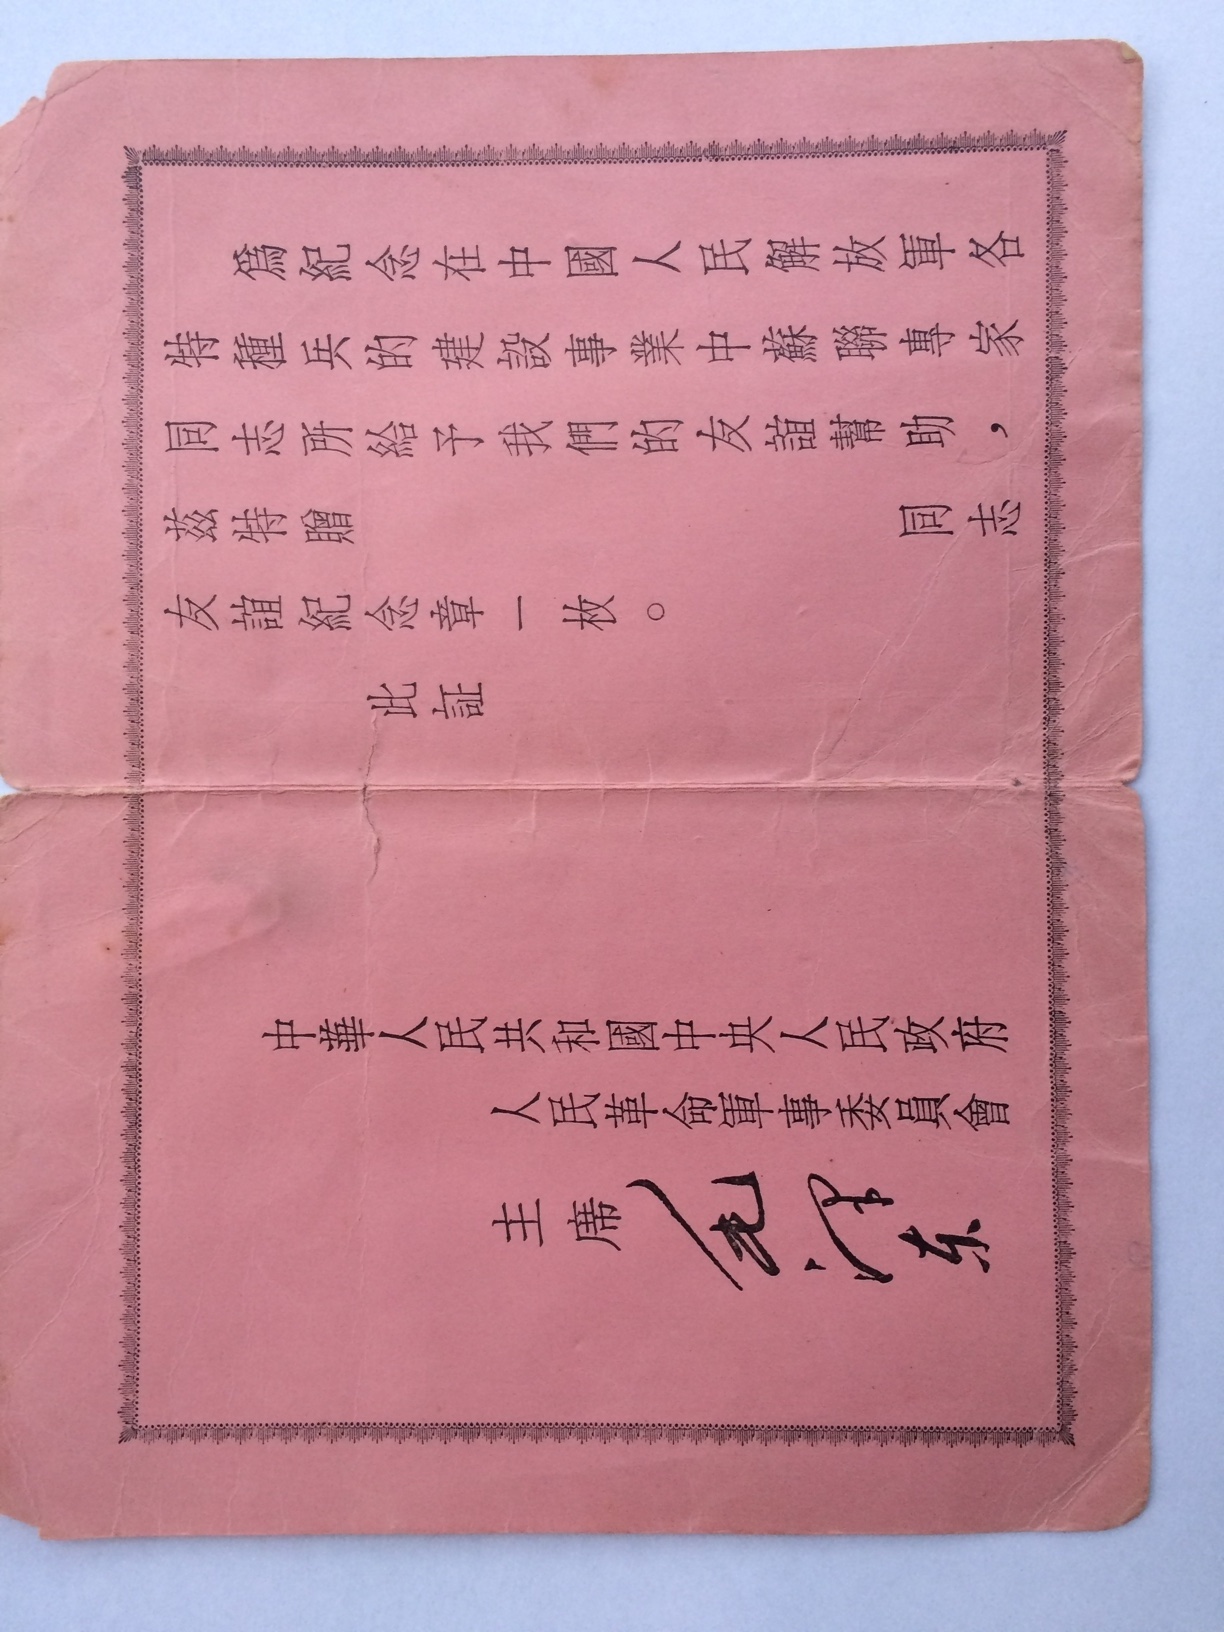 爲紀念在中國人民解放軍各
特種兵的建設事業中蘇聯專家
同志所給予我們的友誼幫助，
茲特贈 同志
友誼紀念章一枚。
此証
中華人民共和國中央人民政府
人民革命軍事委員會
主席 毛泽东